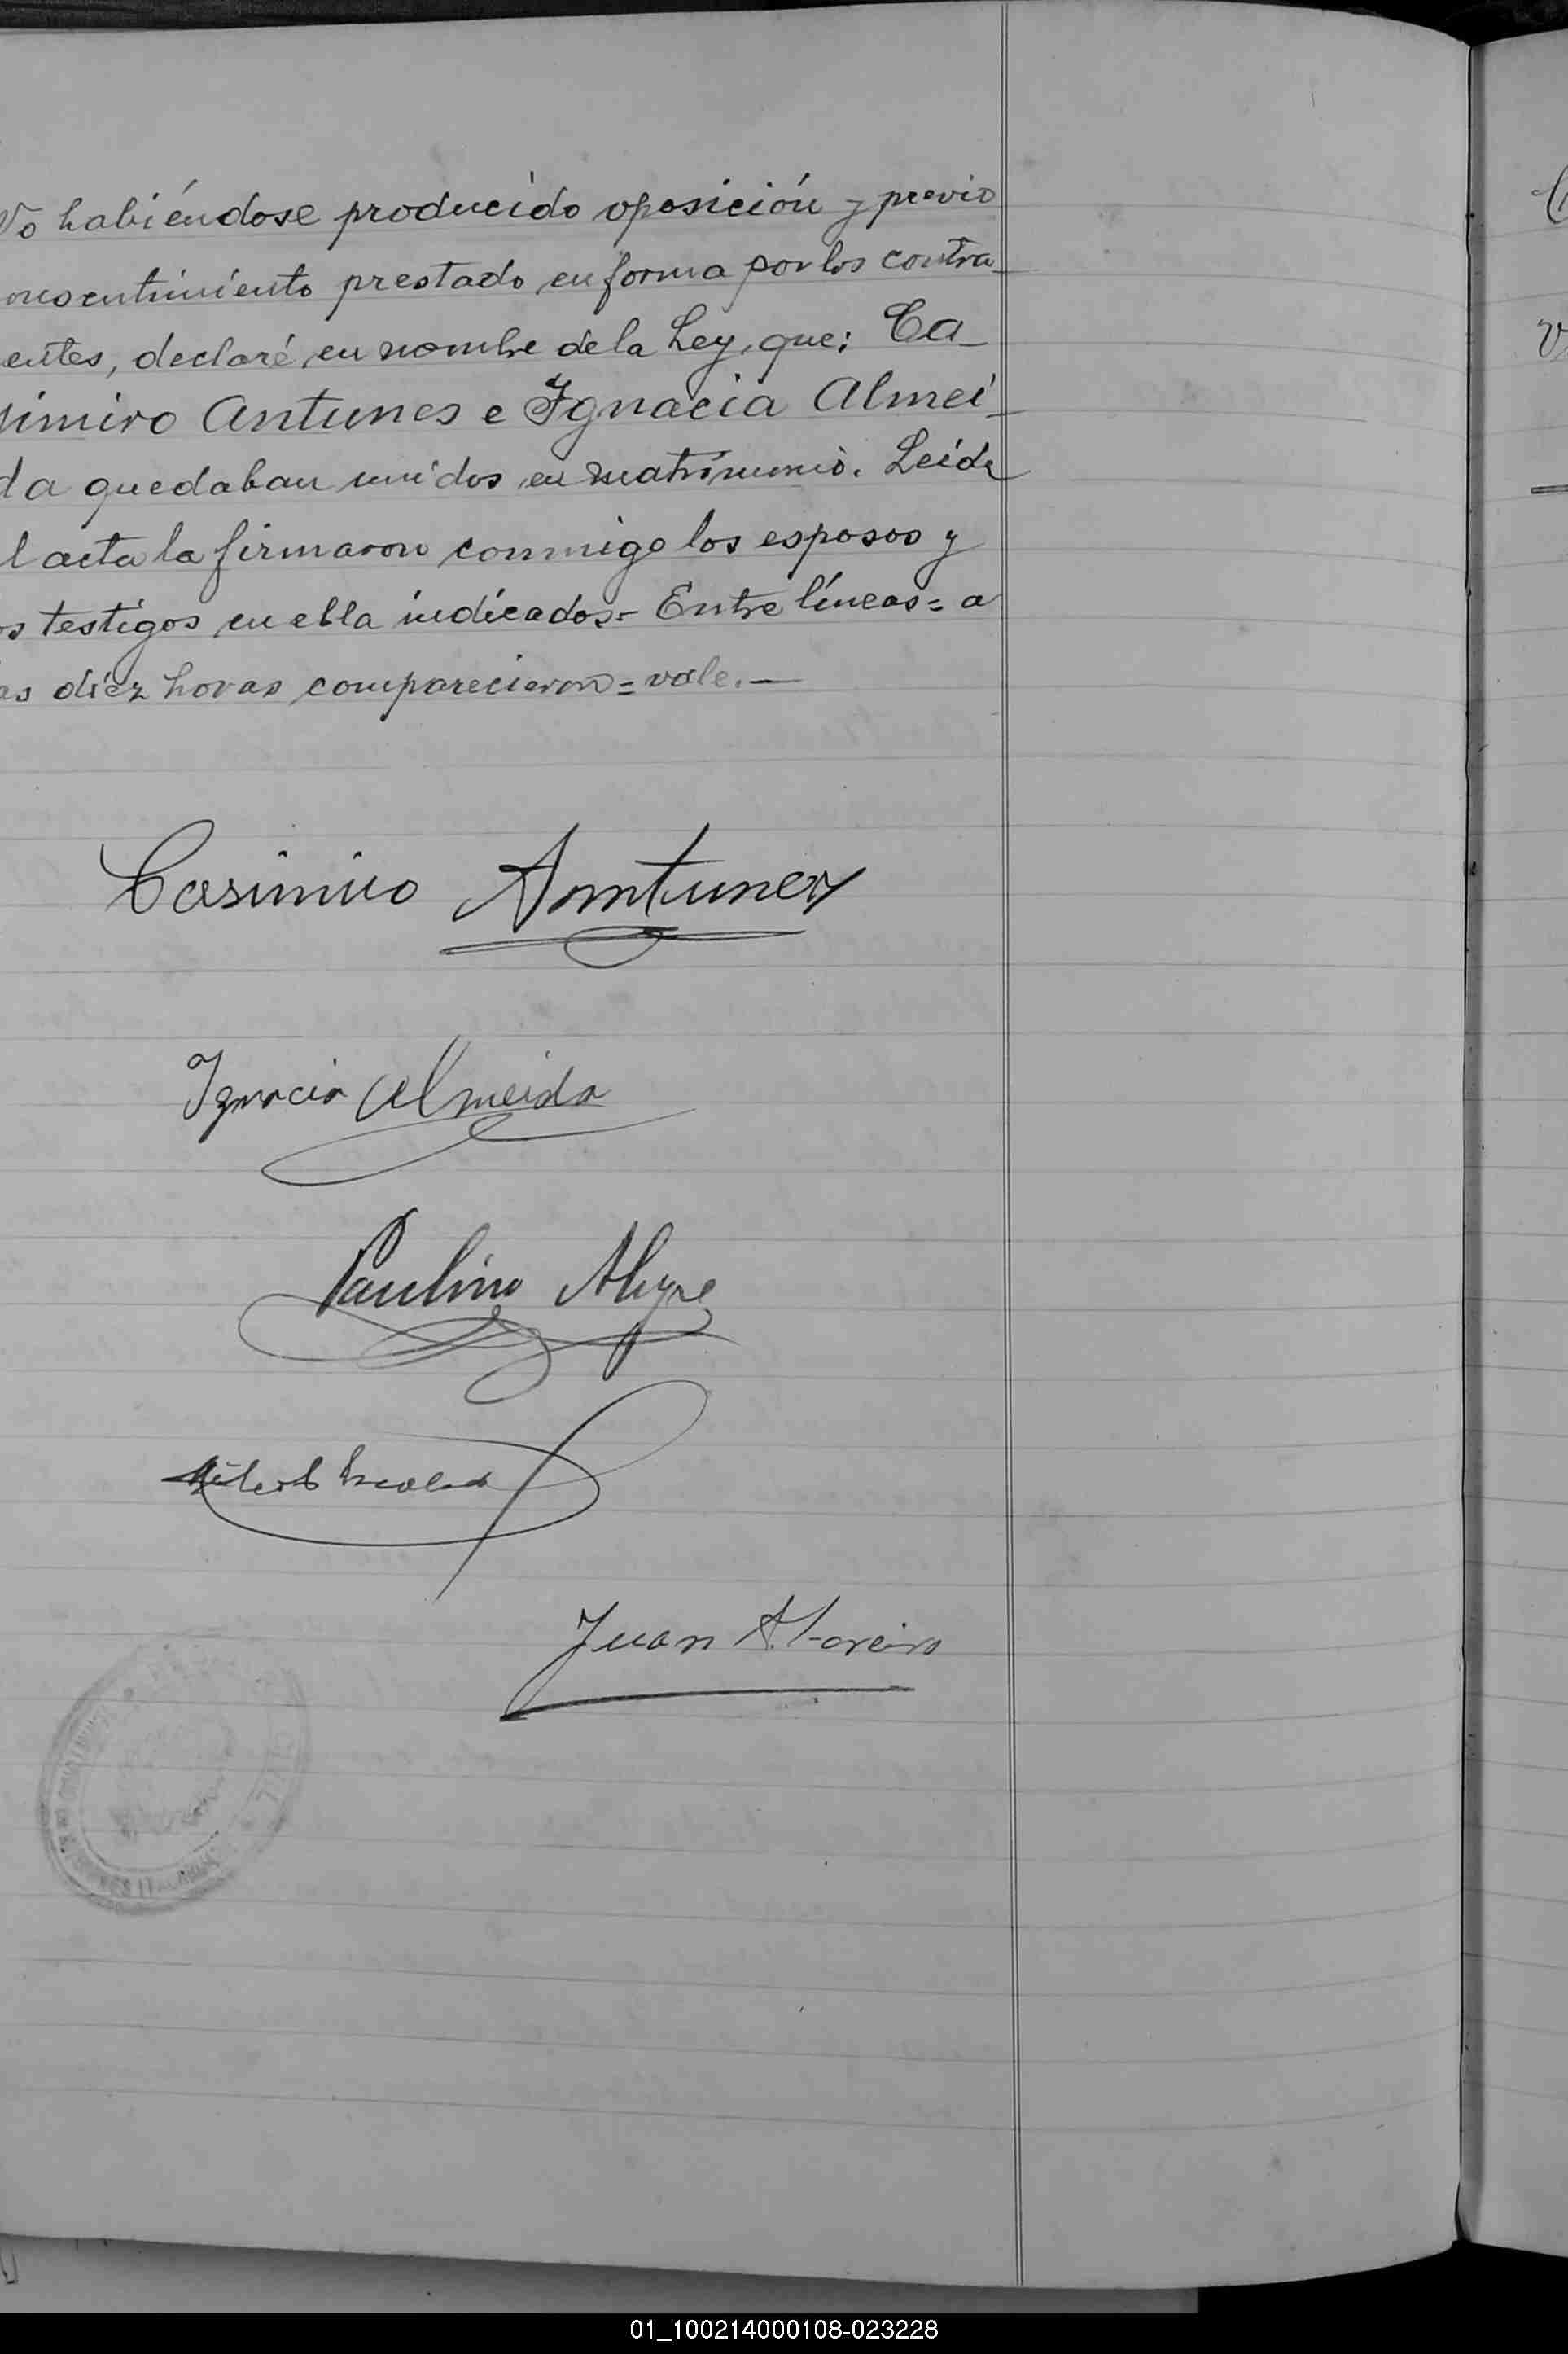 No habiéndose producido oposición y previo
onsentimiento prestado en forma por los contra_
entes, declaré en nombre de la Ley, que: Ca_
simiro Antunes e Ignacia Almei_
da quedaban unidos en matrimonio. Leida
l acta la firmaron conmigo los esposos y
os testigos en ella indicados.- Entre líneas= a
as diez horas comparecieron= vale.—
Casimiro Antunez
Ignacia Almeida
Paulino Alegre
Juan A.
CIVIL
01_100214000108-023228